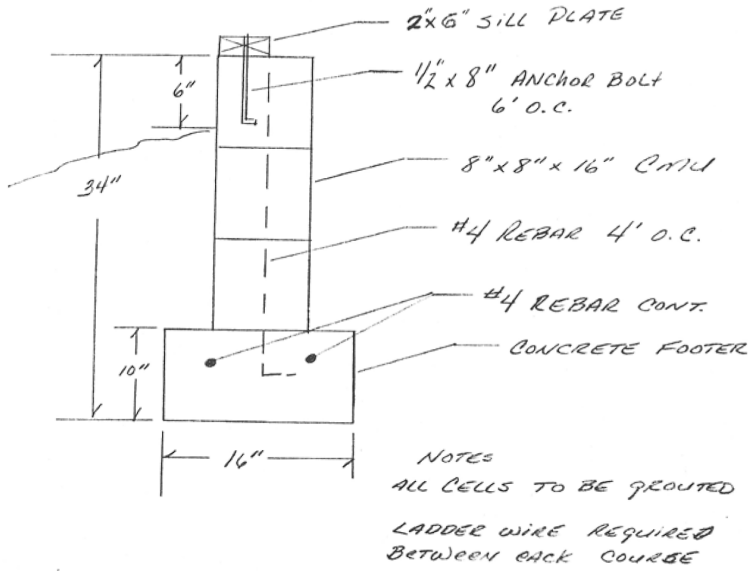 2"x6" SILL PLATE
1/2" x 8" ANCHOR BOLT
6' O.C.
6"
34"
8" x 8" x 16" CMU
#4 REBAR 4' O.C.
#4 REBAR CONT.
CONCRETE FOOTER
10"
16"
NOTES
ALL CELLS TO BE GROUTED
LADDER WIRE REQUIRED
BETWEEN EACK COURSE